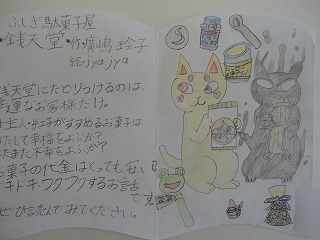 ふしぎ駄菓子屋
銭天堂 作・廣嶋 玲子
絵・jyajya
銭天堂にたどりつけるのは、
幸運なお客様だけ。
主人・紅子がすすめるお菓子は
たして幸福をよぶか?
たまた不幸をよぶか?
お菓子の代金はとっても安い
ドキドキ・ワクワクするお話
です。
ぜひ読んでみてください。